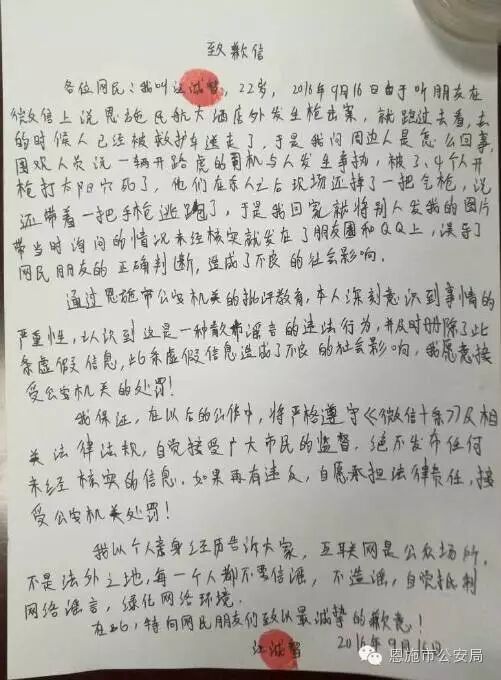 致歉信
各位网民：我叫江诚哲，22岁，2016年9月16日由于听朋友在
微信上说恩施民航大酒店外发生枪击案，就跑过去看，去
的时候人已经被救护车送走了，于是我问周边人是怎么回事，
围观人员说一辆开路虎的司机与人发生争执，被3、4个人开
枪打太阳穴死了，他们在杀人之后现场还掉了一把气枪，说
还带着一把手枪逃跑了，于是我回家就将别人发我的图片
带当时询问的情况未经核实就发在了朋友圈和QQ上，误导了
网民朋友的正确判断，造成了不良的社会影响。
通过恩施市公安机关的批评教育，本人深刻意识到事情的
严重性，认识到这是一种散布谣言的违法行为，并及时删除了此
条虚假信息，此条虚假信息造成了不良的社会影响，我愿意接
受公安机关的处罚！
我保证，在以后的工作中，将严格遵守《微信十条》及相
关法律法规，自觉接受广大市民的监督。绝不发布任何
未经核实的信息。如果再有违反，自愿承担法律责任，接
受公安机关处罚！
我以个人亲身经历告诉大家，互联网是公众场所，
不是法外之地，每一个人都不要信谣，不造谣，自觉抵制
网络谣言，绿化网络环境。
在此，特向网民朋友们致以最诚挚的歉意！
江诚哲 2016年9月16日
恩施市公安局